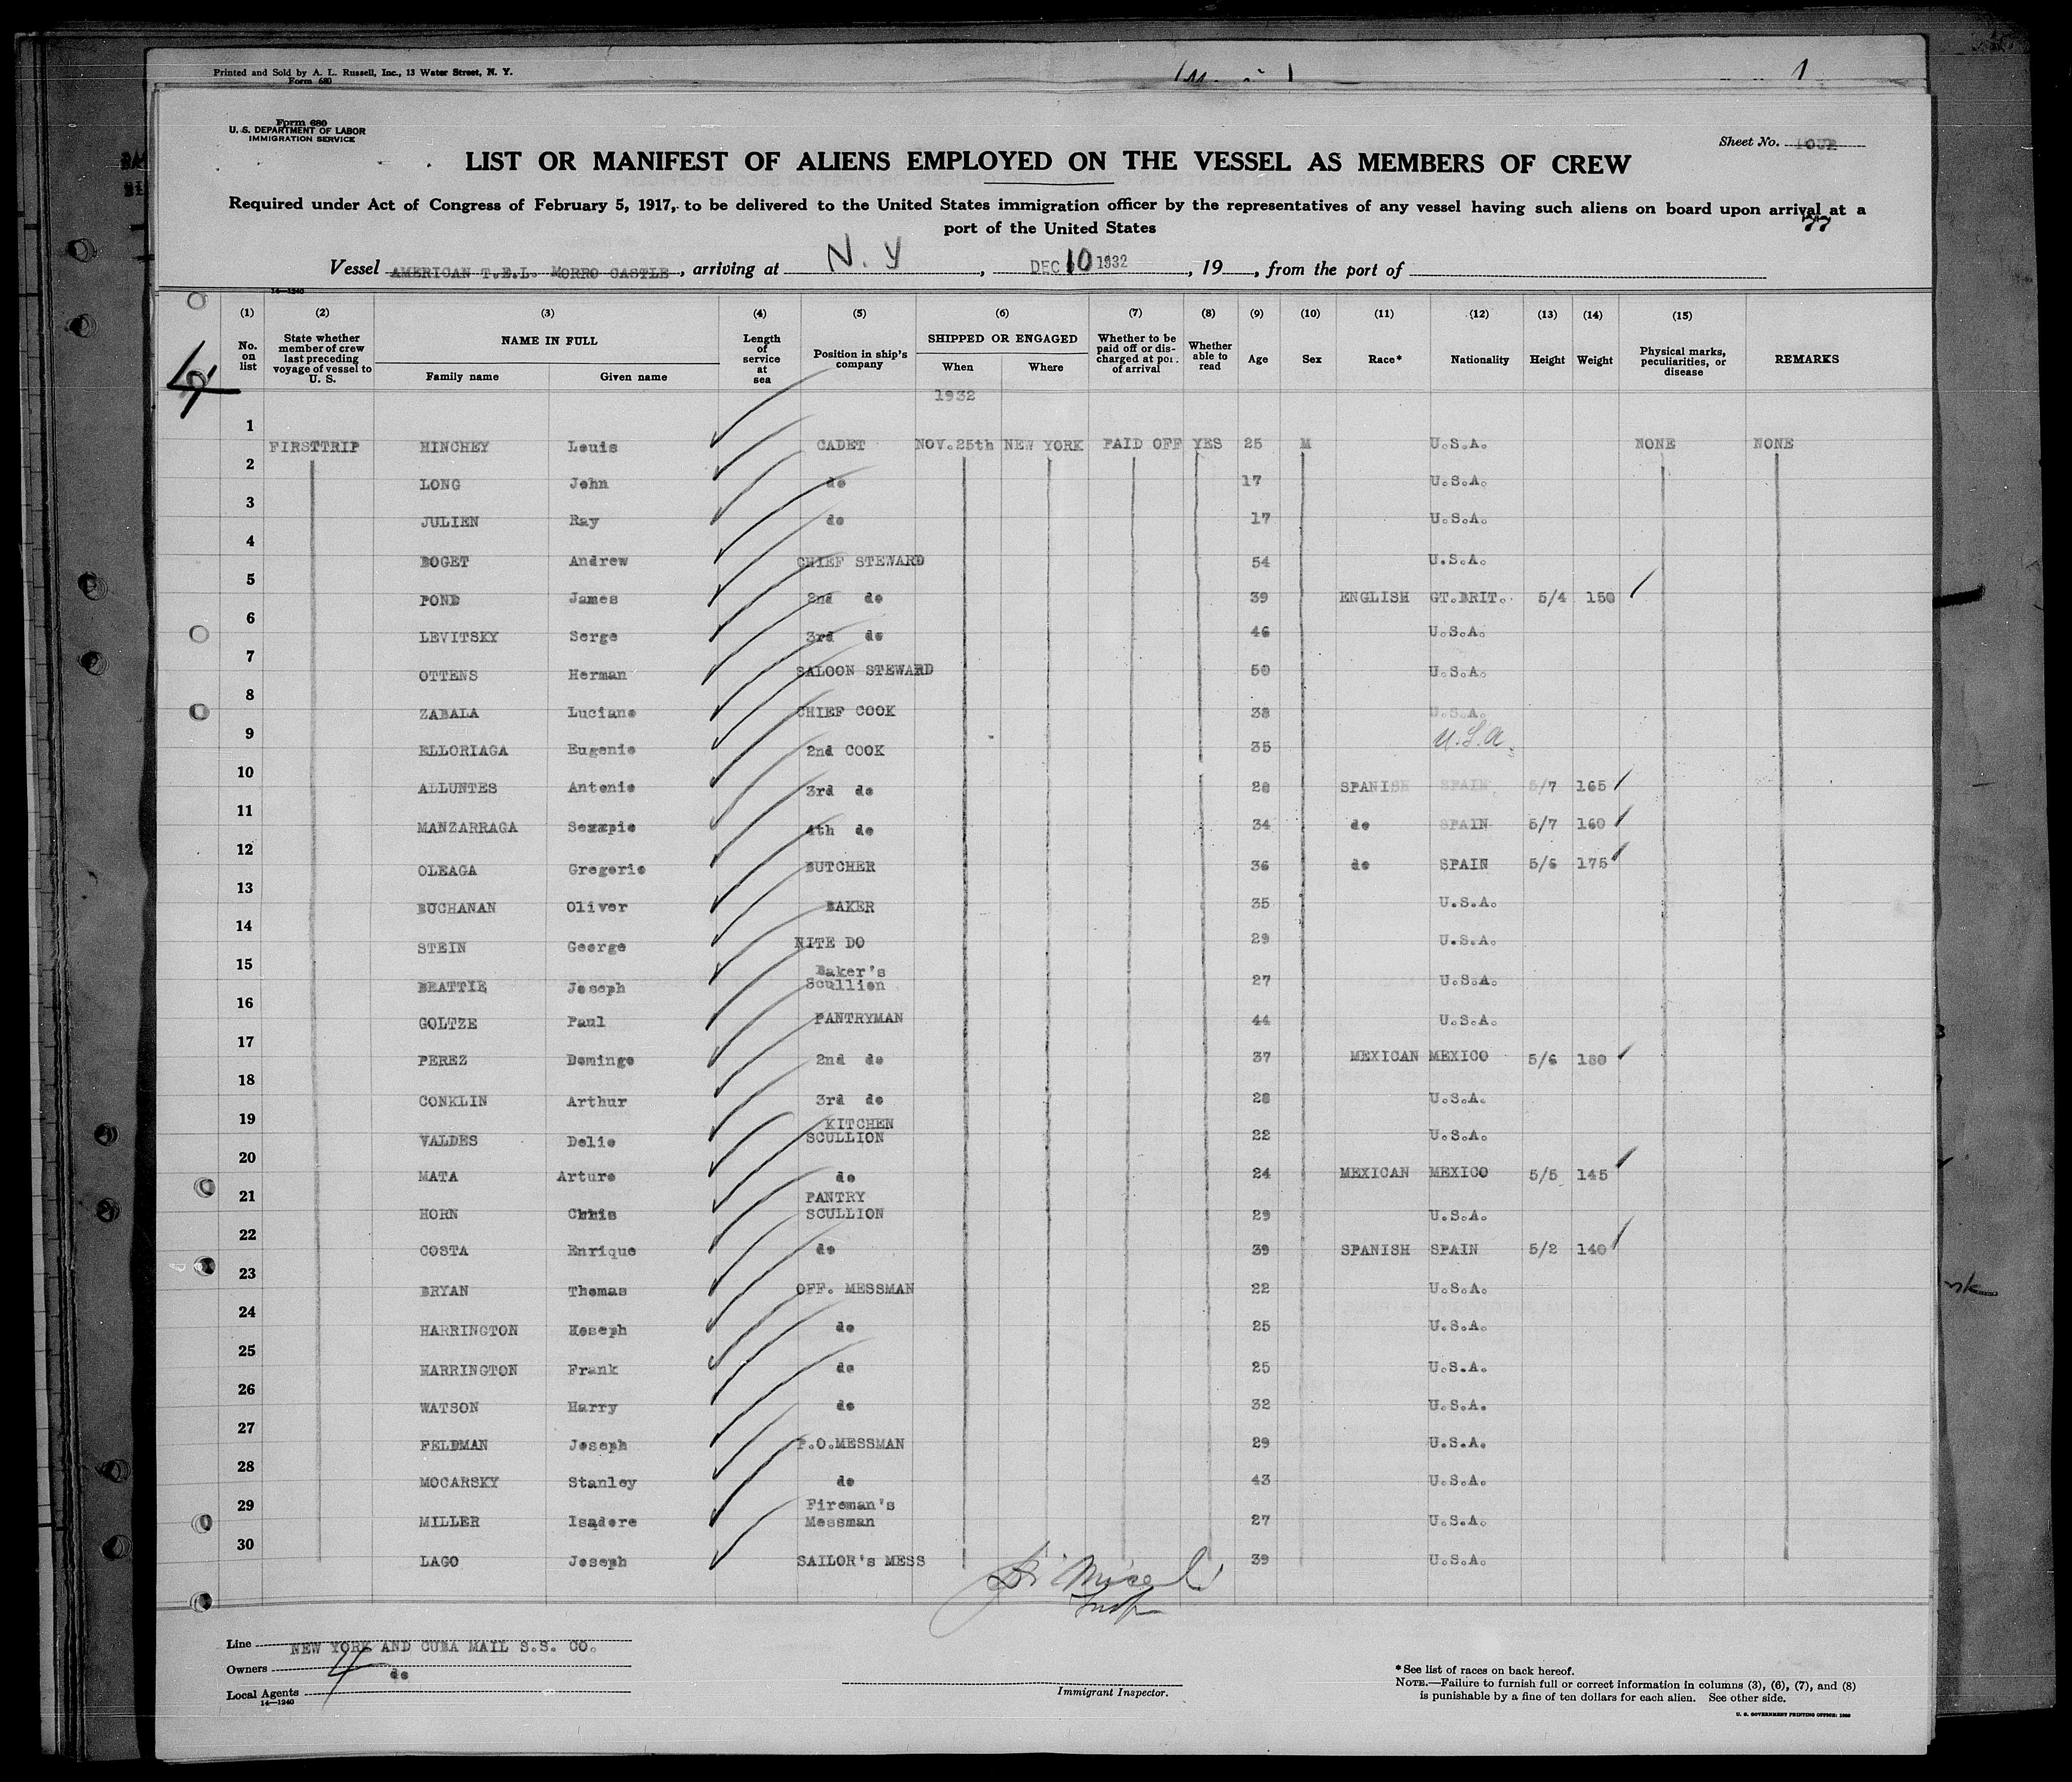 Printed and Sold by A. L. Russell, Inc., 13 Water Street, N. Y.
Form 680
1
Form 680
U. S. DEPARTMENT OF LABOR
IMMIGRATION SERVICE
Sheet No. FOUR
LIST OR MANIFEST OF ALIENS EMPLOYED ON THE VESSEL AS MEMBERS OF CREW
Required under Act of Congress of February 5, 1917, to be delivered to the United States immigration officer by the representatives of any vessel having such aliens on board upon arrival at a
port of the United States
77
Vessel AMERICAN T.E.L. MORRO CASTLE, arriving at N. Y, DEC 10 1932, 19 , from the port of
14—1240
(1) (2) (3) (4) (5) (6) (7) (8) (9) (10) (11) (12) (13) (14) (15)
No. on list State whether member of crew last preceding voyage of vessel to U. S. NAME IN FULL Family name Given name Length of service at sea Position in ship's company SHIPPED OR ENGAGED When Where Whether to be paid off or discharged at port of arrival Whether able to read Age Sex Race* Nationality Height Weight Physical marks, peculiarities, or disease REMARKS
4
1932
1 FIRSTTRIP HINCHEY Louis CADET NOV.25th NEW YORK PAID OFF YES 25 M U.S.A. NONE NONE
2 LONG John do 17 U.S.A.
3 JULIEN Ray do 17 U.S.A.
4 BOGET Andrew CHIEF STEWARD 54 U.S.A.
5 POND James 2nd do 39 ENGLISH GT.BRIT. 5/4 150
6 LEVITSKY Serge 3rd do 46 U.S.A.
7 OTTENS Herman SALOON STEWARD 50 U.S.A.
8 ZABALA Luciano CHIEF COOK 38 U.S.A.
9 ELLORIAGA Eugenio 2nd COOK 35 U.S.A.
10 ALLUNTES Antonio 3rd do 28 SPANISH SPAIN 5/7 165
11 MANZARRAGA Sexxpio 4th do 34 do SPAIN 5/7 160
12 OLEAGA Gregorio BUTCHER 36 do SPAIN 5/6 175
13 BUCHANAN Oliver BAKER 35 U.S.A.
14 STEIN George NITE DO 29 U.S.A.
15 BEATTIE Joseph Baker's Scullion 27 U.S.A.
16 GOLTZE Paul PANTRYMAN 44 U.S.A.
17 PEREZ Domingo 2nd do 37 MEXICAN MEXICO 5/6 180
18 CONKLIN Arthur 3rd do 28 U.S.A.
19 VALDES Delio KITCHEN SCULLION 22 U.S.A.
20 MATA Arturo do 24 MEXICAN MEXICO 5/5 145
21 HORN Chris PANTRY SCULLION 29 U.S.A.
22 COSTA Enrique do 39 SPANISH SPAIN 5/2 140
23 BRYAN Thomas OFF. MESSMAN 22 U.S.A.
24 HARRINGTON Hoseph do 25 U.S.A.
25 HARRINGTON Frank do 25 U.S.A.
26 WATSON Harry do 32 U.S.A.
27 FELDMAN Joseph P.O.MESSMAN 29 U.S.A.
28 MOCARSKY Stanley do 43 U.S.A.
29 MILLER Isadore Fireman's Messman 27 U.S.A.
30 LAGO Joseph SAILOR's MESS 39 U.S.A.
Insp
Line NEW YORK AND CUBA MAIL S.S. CO.
Owners do
Local Agents
4
14—1240
Immigrant Inspector.
*See list of races on back hereof.
NOTE.—Failure to furnish full or correct information in columns (3), (6), (7), and (8)
is punishable by a fine of ten dollars for each alien. See other side.
U. S. GOVERNMENT PRINTING OFFICE: 1930